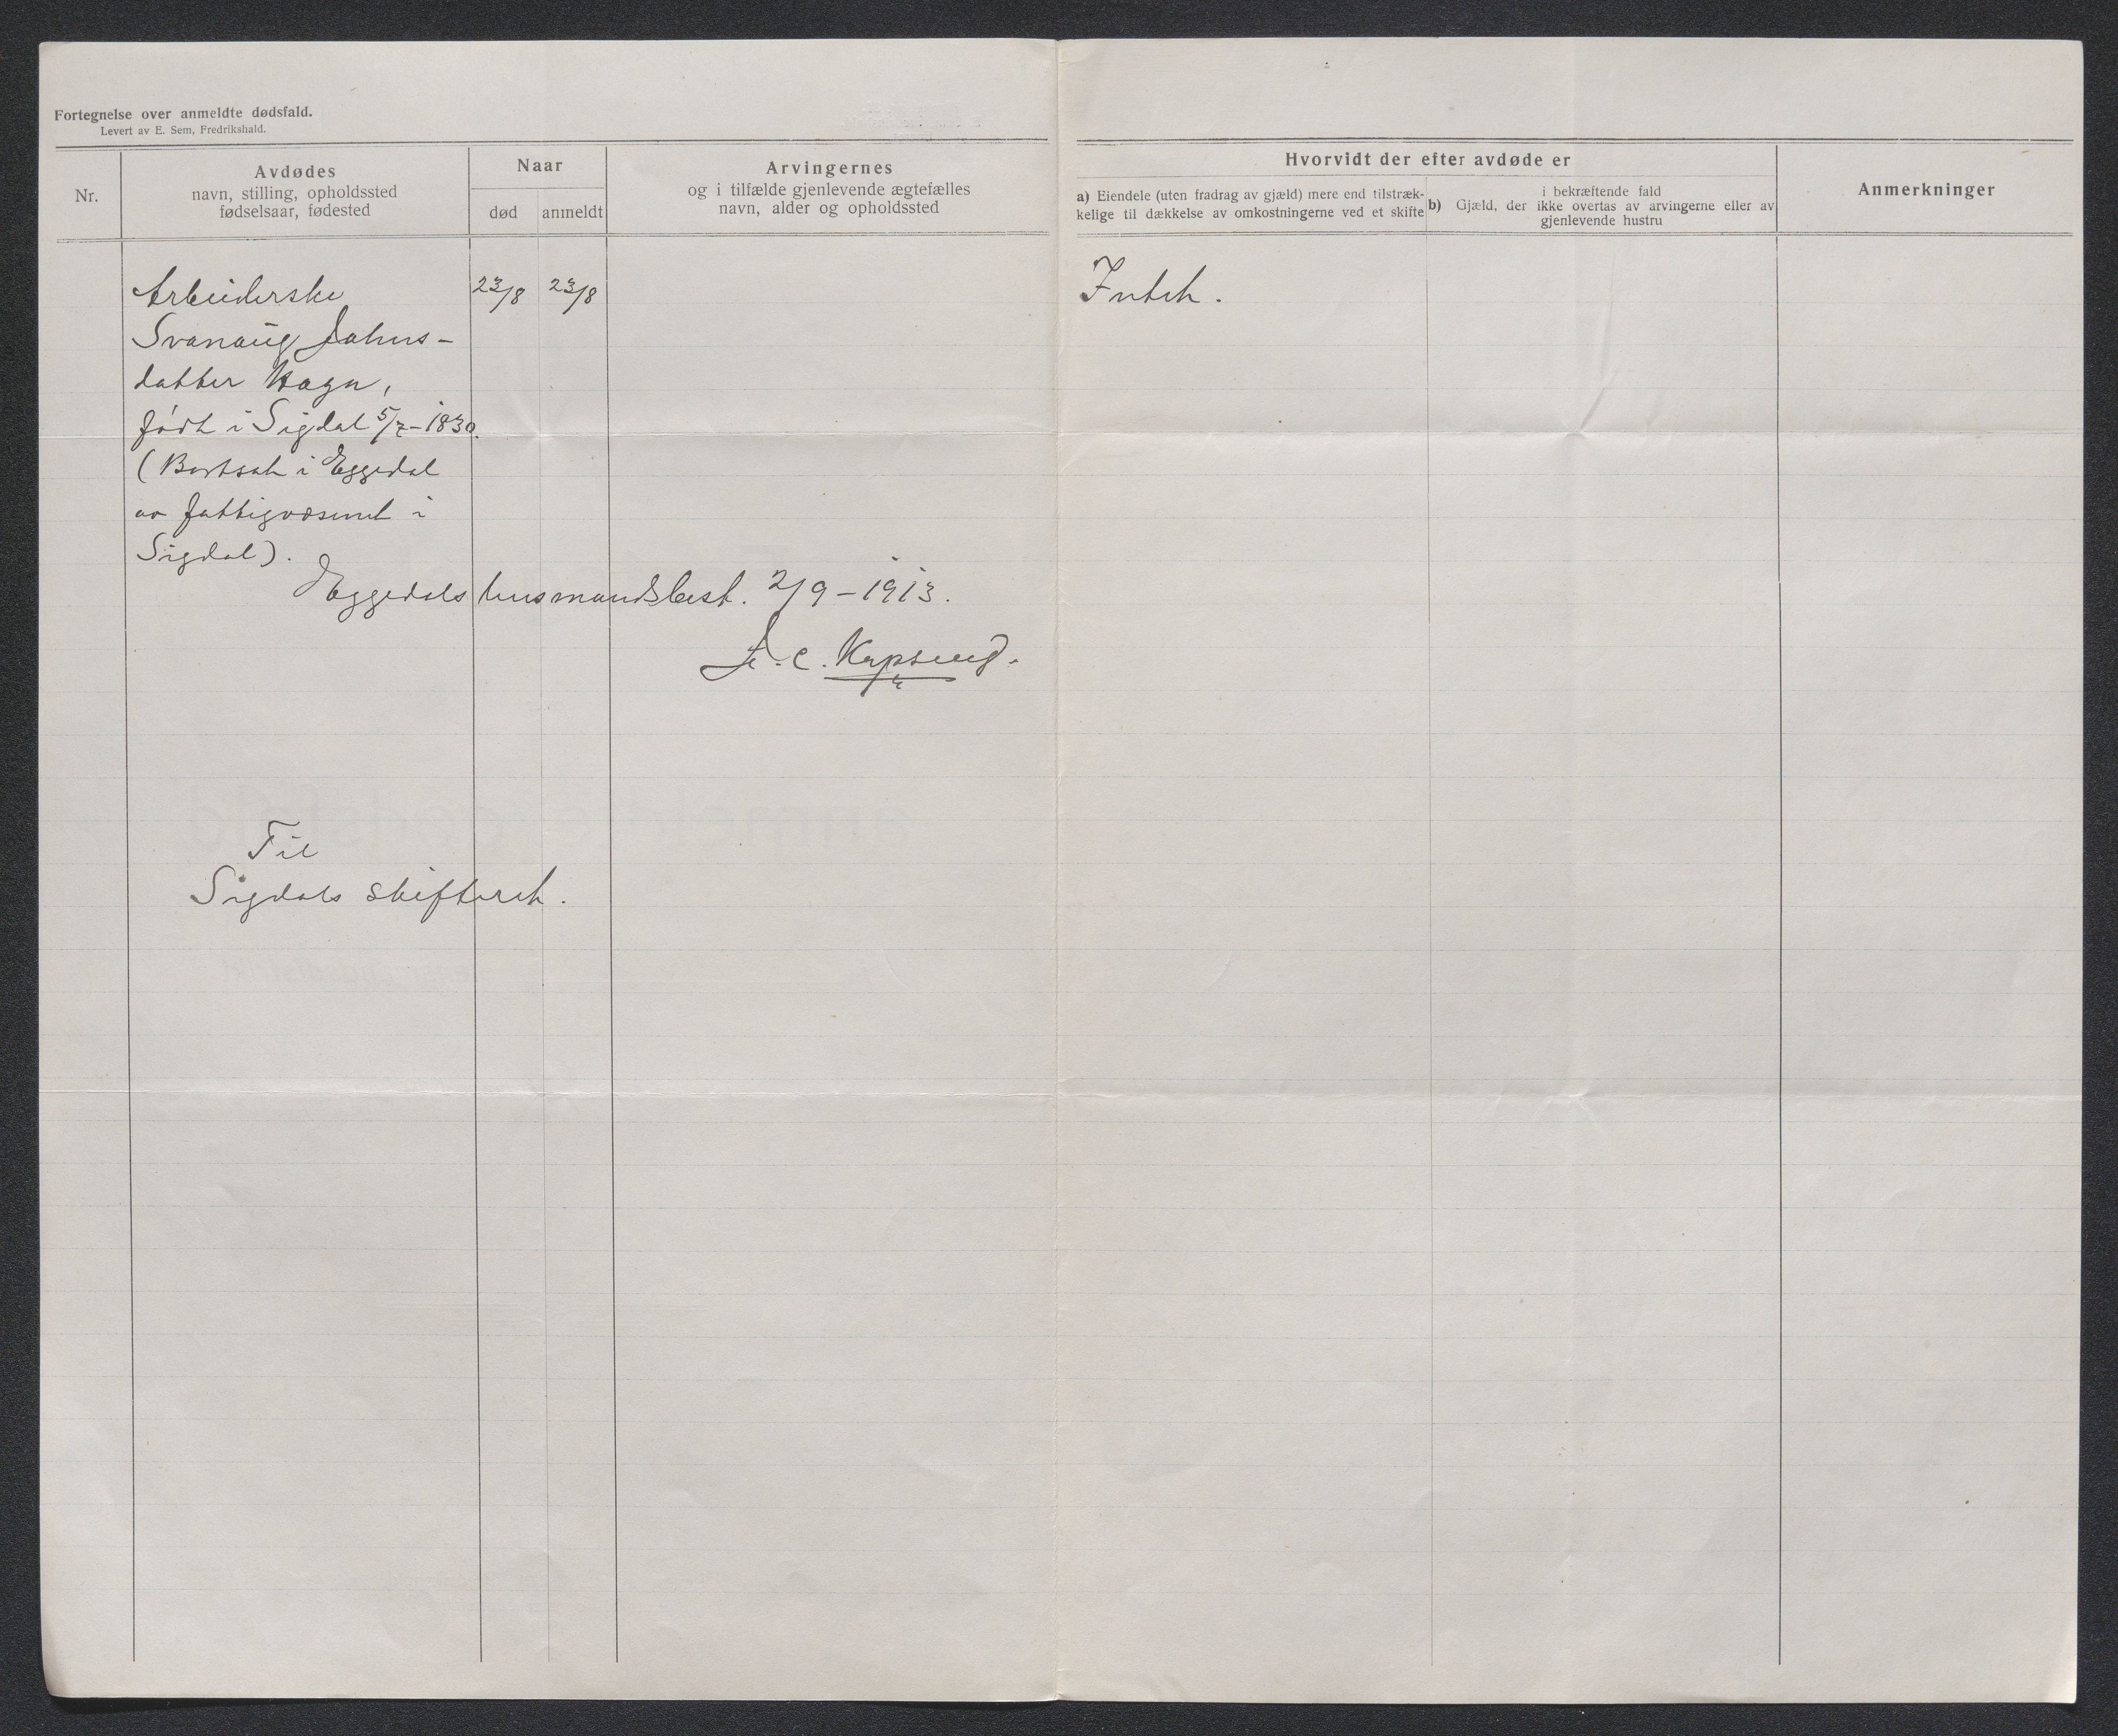 Fortegnelse over anmeldte dødsfald.
Levert av E. Sem, Fredrikshald.
Nr.
Avdødes
navn, stilling, opholdssted
fødselsaar, fødested
Naar
død
anmeldt
Arvingernes
og i tilfælde gjenlevende ægtefælles
navn, alder og opholdssted
Hvorvidt der efter avdøde er
a) Eiendele (uten fradrag av gjæld) mere end tilstræk-
kelige til dækkelse av omkostningerne ved et skifte
i bekræftende fald
b) Gjæld, der ikke overtas av arvingerne eller av
gjenlevende hustru
Anmerkninger
Arbeiderske
23/8
23/8
Intet.
Svanaug Johns-
datter Haga,
født i Sigdal 5/7-1830.
(Bortsat i Eggedal
av fattigvæsenet i
Sigdal).
Eggedals lensmandsbest. 2/9-1913.
A. C.
Til
Sigdals skifteret.